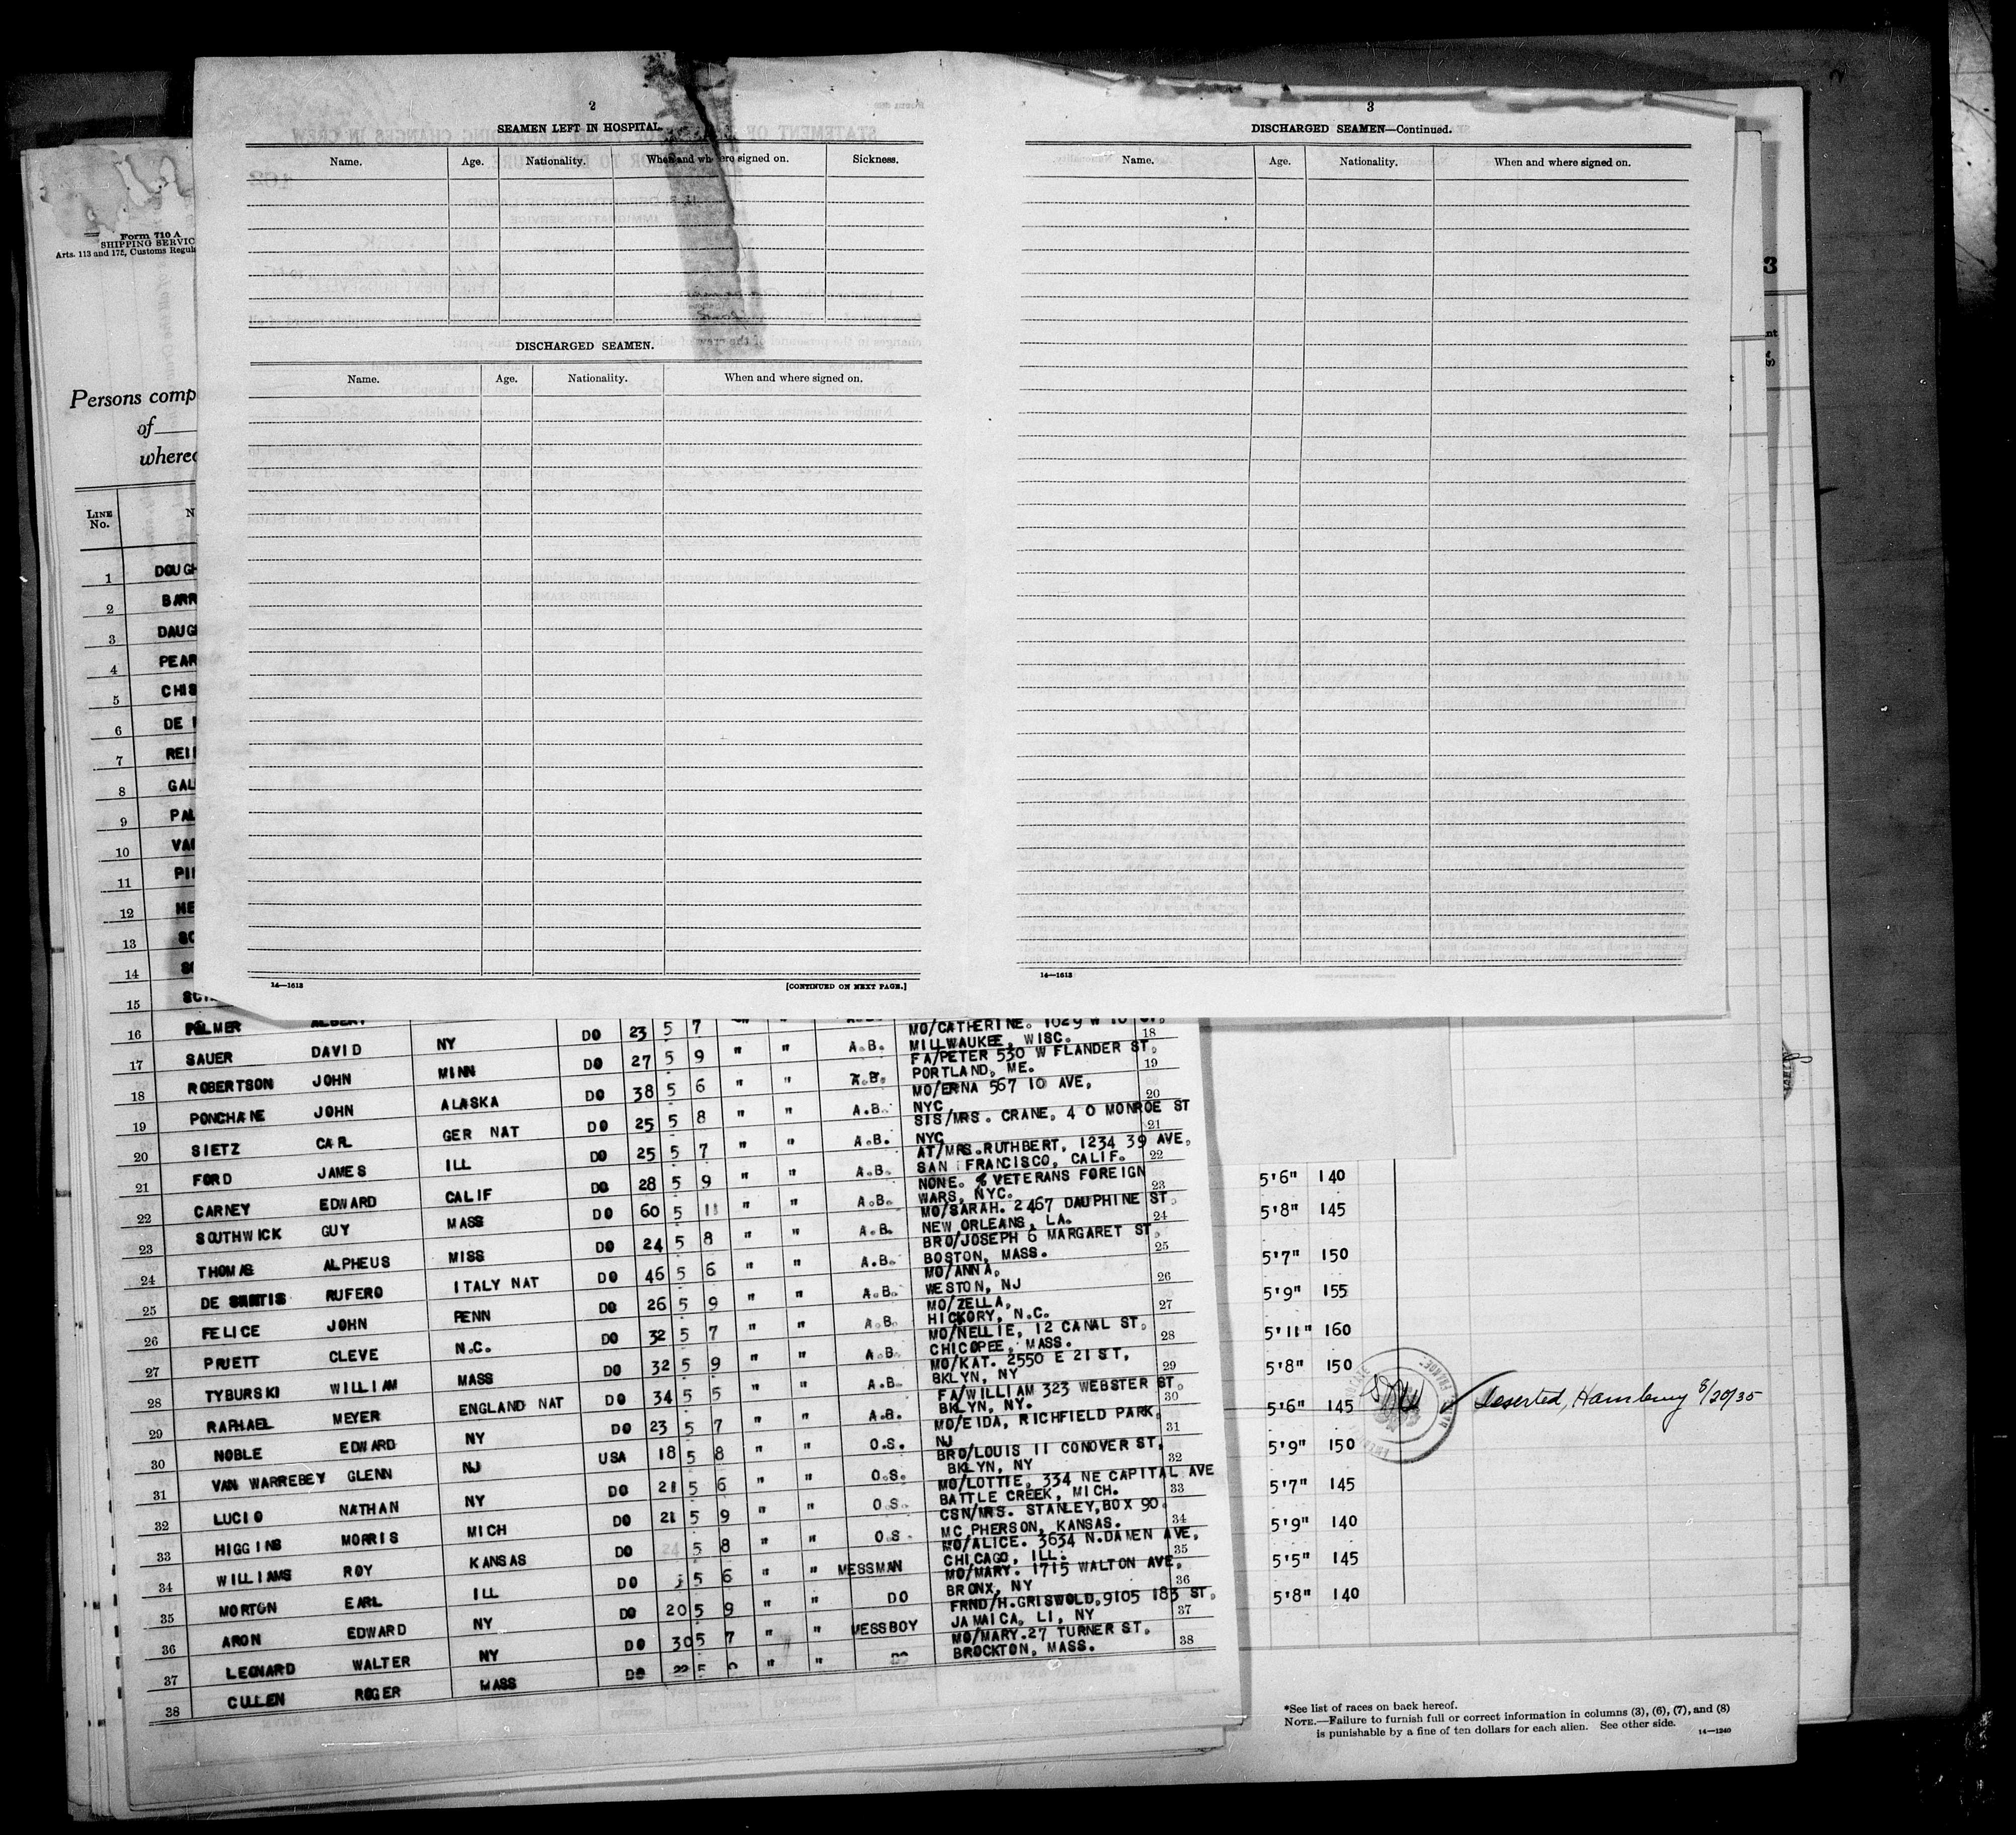 2
SEAMEN LEFT IN HOSPITAL
Name. Age. Nationality. When and where signed on. Sickness.
DISCHARGED SEAMEN.
Name. Age. Nationality. When and where signed on.
14—1613 [CONTINUED ON NEXT PAGE.]
3
DISCHARGED SEAMEN—Continued.
Name. Age. Nationality. When and where signed on.
14—1613
Form 710 A
SHIPPING SERVIC
Arts. 113 and 175, Customs Regul
Persons comp
of
where
LINE No. N
1 DOUGH
2 BARR
3 DAUG
4 PEAR
5 CHIS
6 DE
7 REI
8 GAL
9 PAL
10 VA
11 PI
12 ME
13 SC
14
15
16 PALMER ALBERT
17 SAUER DAVID NY DO 23 5 7 " "
18 ROBERTSON JOHN MINN DO 27 5 9 " " A.B.
19 PONCHANE JOHN ALASKA DO 38 5 6 " " A.B.
20 SIETZ CARL GER NAT DO 25 5 8 " " A.B.
21 FORD JAMES ILL DO 25 5 7 " " A.B.
22 CARNEY EDWARD CALIF DO 28 5 9 " " A.B.
23 SOUTHWICK GUY MASS DO 60 5 11 " " A.B.
24 THOMAS ALPHEUS MISS DO 24 5 8 " " A.B.
25 DE SANTIS RUFERO ITALY NAT DO 46 5 6 " " A.B.
26 FELICE JOHN PENN DO 26 5 9 " " A.B.
27 PRUETT CLEVE N.C. DO 32 5 7 " " A.B.
28 TYBURSKI WILLIAM MASS DO 32 5 9 " " A.B.
29 RAPHAEL MEYER ENGLAND NAT DO 34 5 5 " " A.B.
30 NOBLE EDWARD NY DO 23 5 7 " " A.B.
31 VAN WARREBEY GLENN NJ USA 18 5 8 " " O.S.
32 LUCIO NATHAN NY DO 21 5 6 " " O.S.
33 HIGGINS MORRIS MICH DO 21 5 9 " " O.S.
34 WILLIAMS ROY KANSAS DO 24 5 8 " " O.S.
35 MORTON EARL ILL DO 5 6 " " MESSMAN
36 ARON EDWARD NY DO 20 5 9 " " DO
37 LEONARD WALTER NY DO 30 5 7 " " MESSBOY
38 CULLEN ROGER MASS DO 22 5 " " DO
MO/CATHERINE. 1029 W 10 ST.
MILLWAUKEE, WISC. 18
FA/PETER 530 W FLANDER ST.
PORTLAND, ME. 19
MO/ERNA 567 10 AVE,
NYC 20
SIS/MRS. CRANE, 4 0 MONROE ST
NYC 21
AT/MRS.RUTHBERT, 1234 39 AVE,
SAN FRANCISCO, CALIF. 22
NONE. % VETERANS FOREIGN
WARS, NYC. 23
MO/SARAH. 2467 DAUPHINE ST.
NEW ORLEANS, LA. 24
BRO/JOSEPH 6 MARGARET ST,
BOSTON, MASS. 25
MO/ANNA,
WESTON, NJ 26
MO/ZELLA,
HICKORY, N.C. 27
MO/NELLIE, 12 CANAL ST,
CHICOPEE, MASS. 28
MO/KAT. 2550 E 21 ST,
BKLYN, NY 29
FA/WILLIAM 323 WEBSTER ST,
BKLYN, NY. 30
MO/EIDA, RICHFIELD PARK,
NJ 31
BRO/LOUIS 11 CONOVER ST,
BKLYN, NY 32
MO/LOTTIE, 334 NE CAPITAL AVE
BATTLE CREEK, MICH. 33
CSN/MRS. STANLEY, BOX 90.
MC PHERSON, KANSAS. 34
MO/ALICE. 3634 N.DAMEN AVE,
CHICAGO, ILL. 35
MO/MARY. 1715 WALTON AVE,
BRONX, NY 36
FRND/H.GRISWOLD,9105 183 ST,
JAMAICA, LI, NY 37
MO/MARY.27 TURNER ST,
BROCKTON, MASS. 38
5'6" 140
5'8" 145
5'7" 150
5'9" 155
5'11" 160
5'8" 150
5'6" 145 Deserted, Hamburg 8/20/35
5'9" 150
5'7" 145
5'9" 140
5'5" 145
5'8" 140
*See list of races on back hereof.
NOTE.—Failure to furnish full or correct information in columns (3), (6), (7), and (8)
is punishable by a fine of ten dollars for each alien. See other side. 14—1240
3